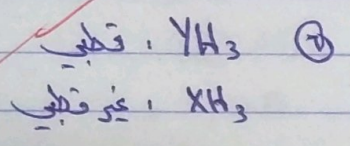 ② YH₃ ، قطبي
XH₃ ، غير قطبي